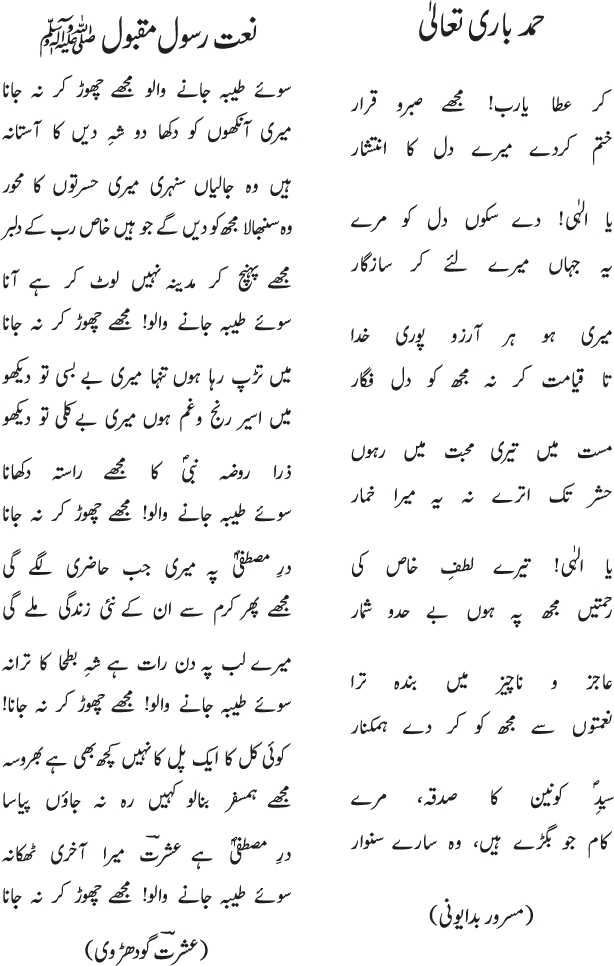 حمد باری تعالیٰ
کر عطا یارب! مجھے صبرو قرار
ختم کردے میرے دل کا انتشار
یا الٰہی! دے سکوں دل کو مرے
یہ جہاں میرے لئے کر سازگار
میری ہو ہر آرزو پوری خدا
تا قیامت کر نہ مجھ کو دل فگار
مست میں تیری محبت میں رہوں
حشر تک اترے نہ یہ میرا خمار
یا الٰہی! تیرے لطفِ خاص کی
رحمتیں مجھ پہ ہوں بے حدو شمار
عاجز و ناچیز میں بندہ ترا
نعمتوں سے مجھ کو کر دے ہمکنار
سیدِؐ کونین کا صدقہ، مرے
کام جو بگڑے ہیں، وہ سارے سنوار
(مسرور بدایونی)
نعت رسول مقبول ﷺ
سوئے طیبہ جانے والو مجھے چھوڑ کر نہ جانا
میری آنکھوں کو دکھا دو شہِ دیں کا آستانہ
ہیں وہ جالیاں سنہری میری حسرتوں کا محور
وہ سنبھالا مجھ کو دیں گے جو ہیں خاص رب کے دلبر
مجھے پہنچ کر مدینہ نہیں لوٹ کر ہے آنا
سوئے طیبہ جانے والو! مجھے چھوڑ کر نہ جانا
میں تڑپ رہا ہوں تنہا میری بے بسی تو دیکھو
میں اسیر رنج وغم ہوں میری بے کلی تو دیکھو
ذرا روضہ نبیؐ کا مجھے راستہ دکھانا
سوئے طیبہ جانے والو! مجھے چھوڑ کر نہ جانا
درِ مصطفیؐ پہ میری جب حاضری لگے گی
مجھے پھر کرم سے ان کے نئی زندگی ملے گی
میرے لب پہ دن رات ہے شہِ بطحا کا ترانہ
سوئے طیبہ جانے والو! مجھے چھوڑ کر نہ جانا!
کوئی کل کا ایک پل کا نہیں کچھ بھی ہے بھروسہ
مجھے ہمسفر بنالو کہیں رہ نہ جاؤں پیاسا
درِ مصطفیؐ ہے عشرتؔ میرا آخری ٹھکانہ
سوئے طیبہ جانے والو! مجھے چھوڑ کر نہ جانا
(عشرتؔ گودھروی)